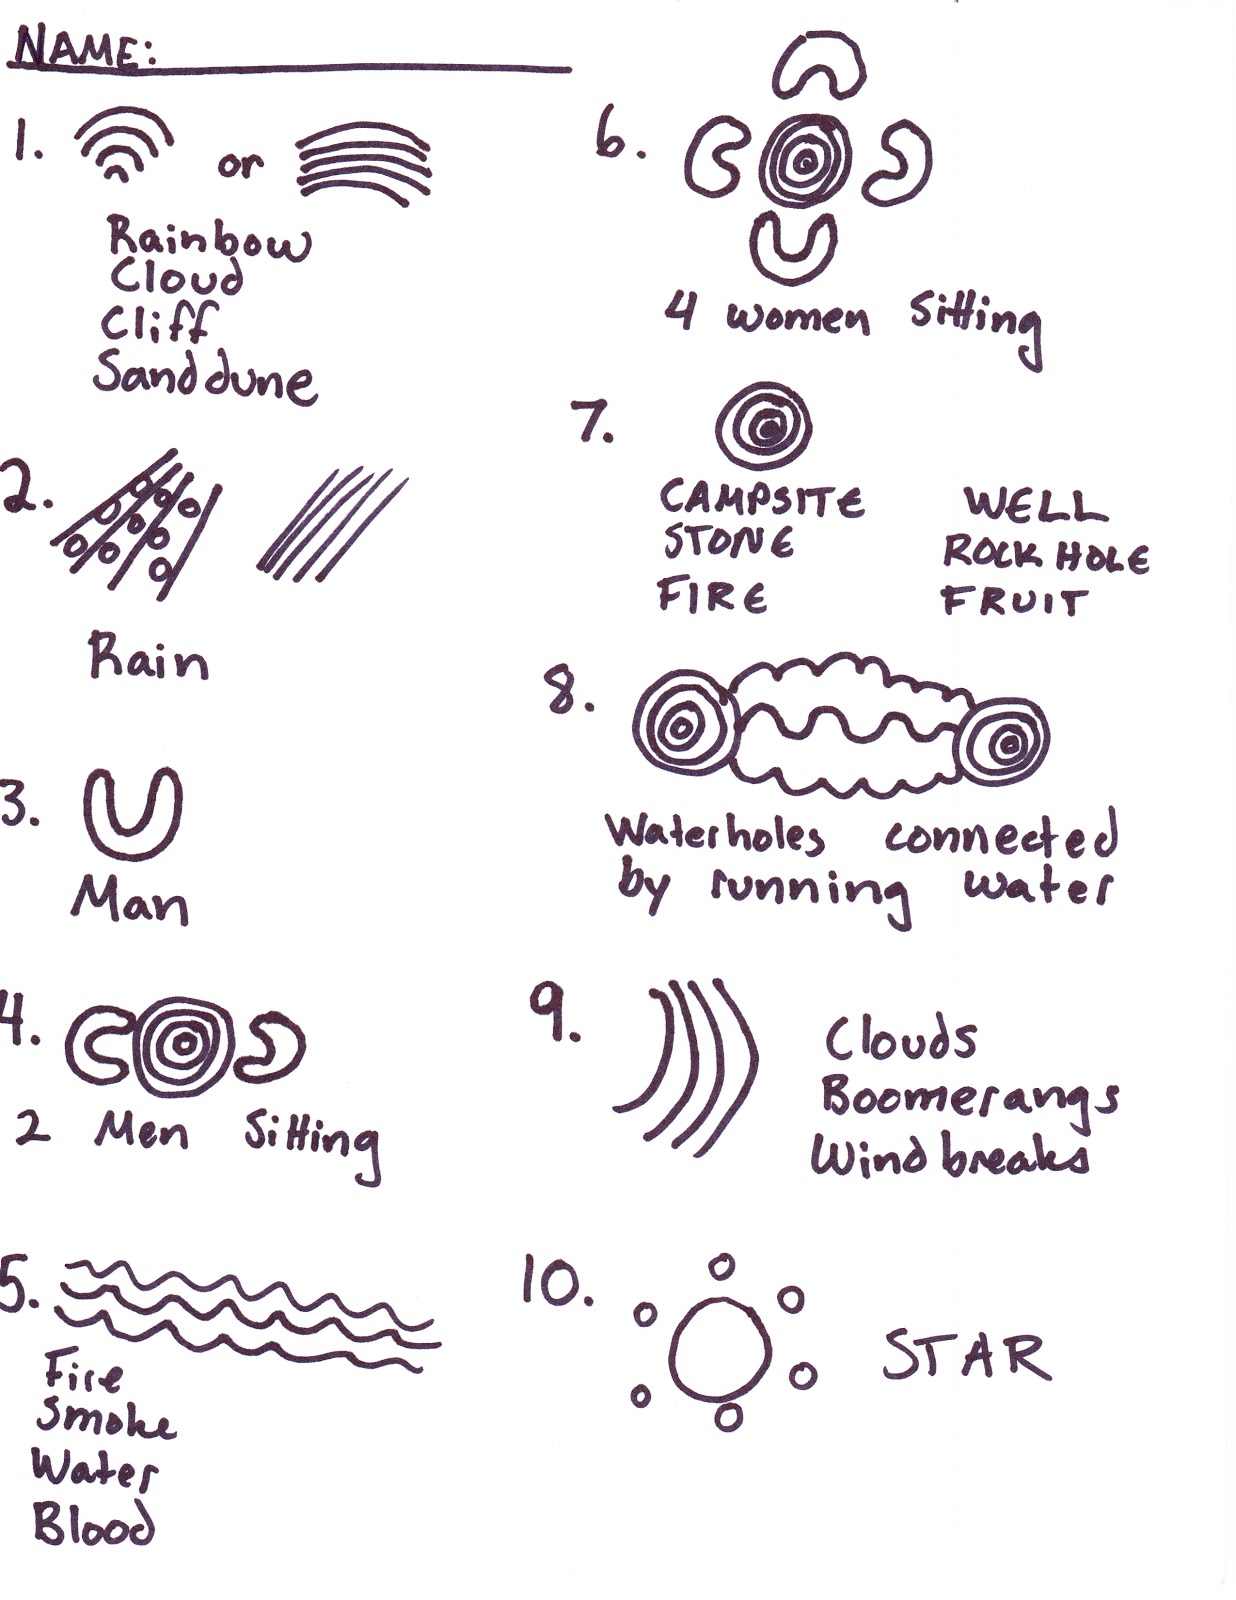 NAME:
1.
or
Rainbow
Cloud
Cliff
Sanddune
2.
Rain
3.
Man
4.
2 Men Sitting
5.
Fire
Smoke
Water
Blood
6.
4 women Sitting
7.
CAMPSITE WELL
STONE ROCK HOLE
FIRE FRUIT
8.
Waterholes connected
by running water
9.
Clouds
Boomerangs
Wind breaks
10.
STAR